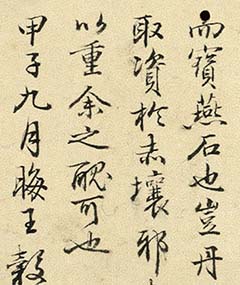 而寶燕石也豈丹
取資於赤壤邪
以重余之醜可也
甲子九月晦王穀